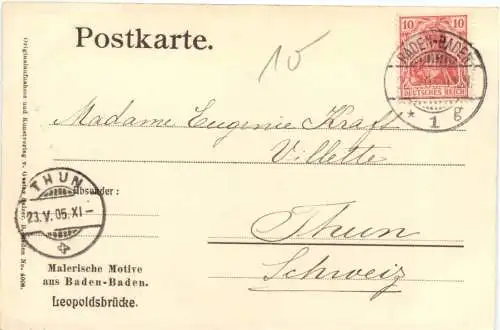 Postkarte.
10
10
DEUTSCHES REICH
BADEN-BADEN
* 1 g
Madame Eugenie Kraft
Villette
THUN
23.V.05.XI-
Absender:
Thun
Schweiz
Malerische Motive
aus Baden-Baden.
Leopoldsbrücke.
Originalaufnahme und Kunstverlag v.